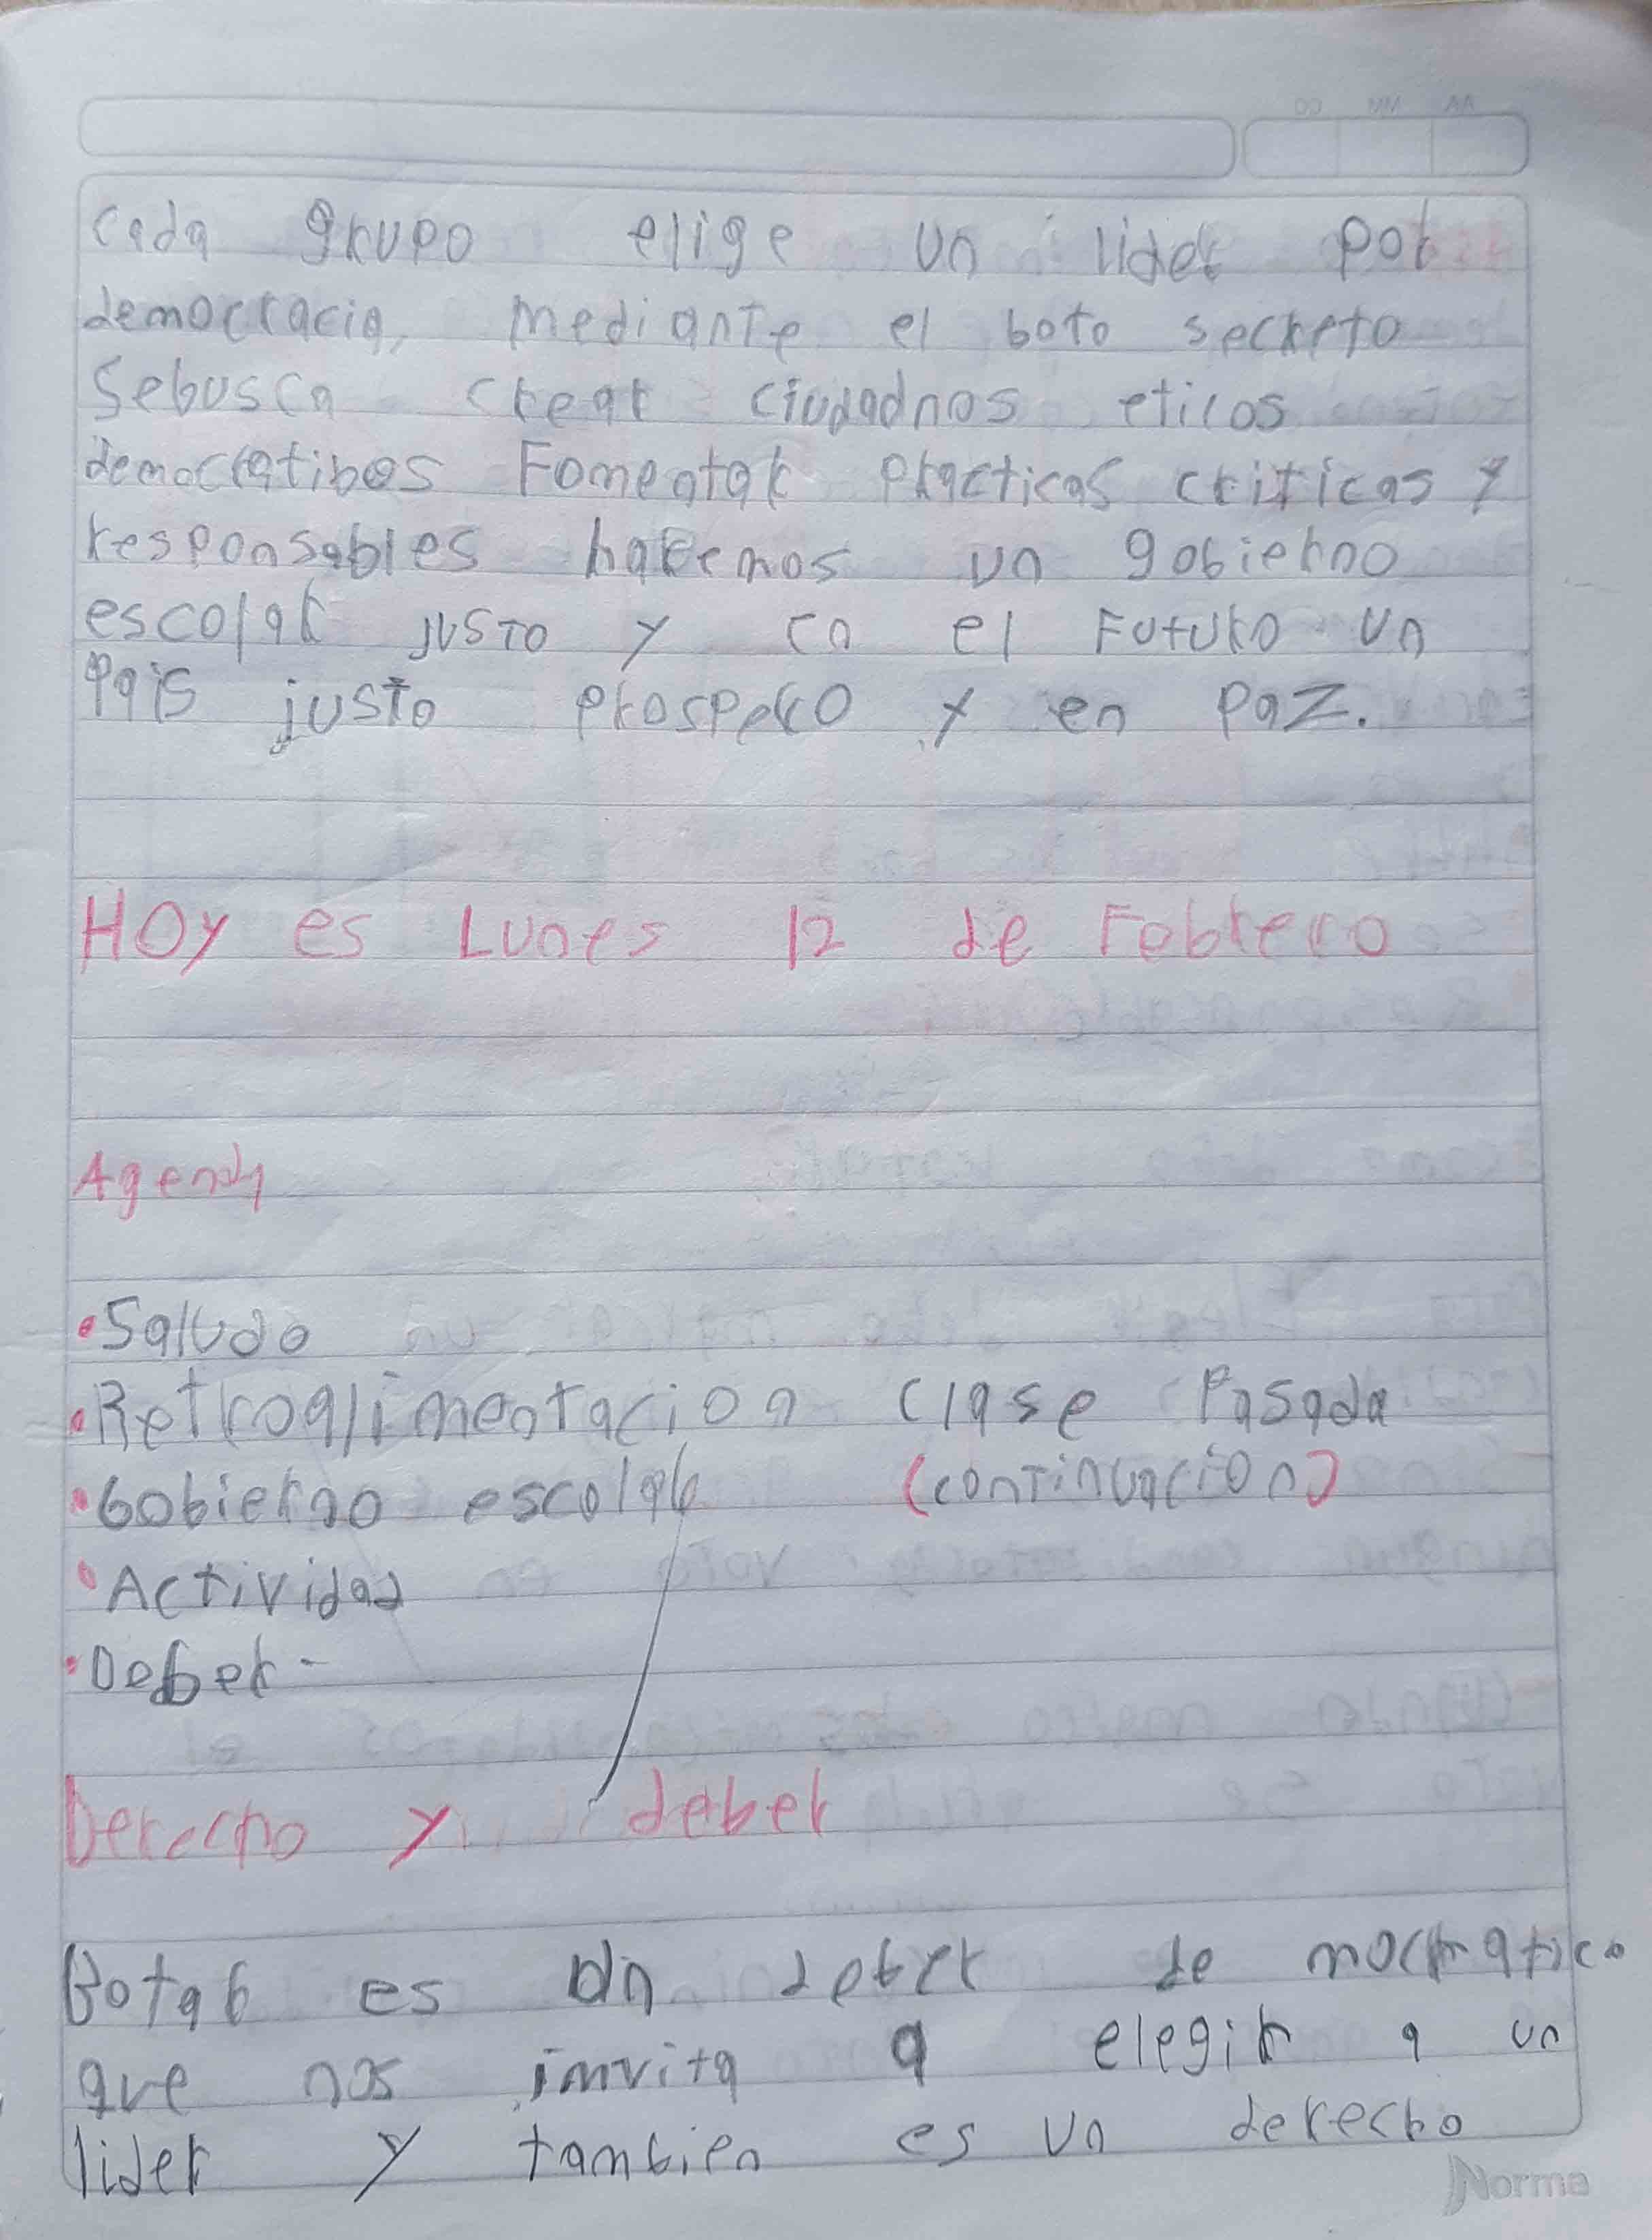 cada grupo elige un lider por
democracia, mediante el boto secreto
Sebusca crear ciudadnos eticos
democratibos Fomentar practicas criticas y
responsables haremos un gobierno
escolar justo y en el Futuro un
Pais justo prospero y en paz.
HOy es Lunes 12 de Febrero
Agenda
• Saludo
• Retroalimentacion clase Pasada
• Gobierno escolar (continuacion)
• Actividad
• Deber -
Derecho y deber
Botar es un deber de mocratico
que nos imvita a elegir a un
lider y tambien es un derecho
Norma